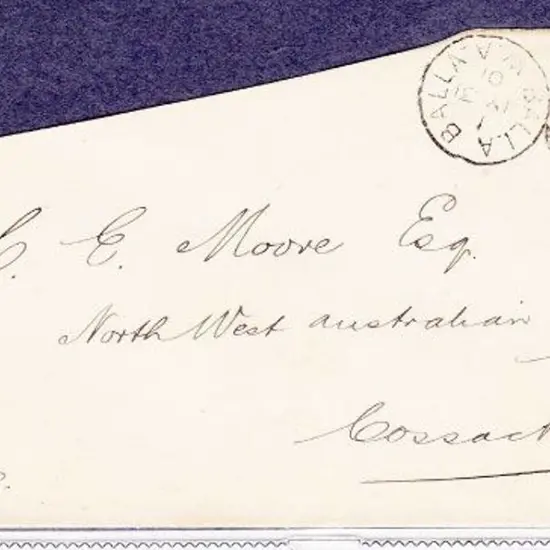 BALLA-BALLA W.A.
C. E. Moore Esq.
North West australian
Cossack